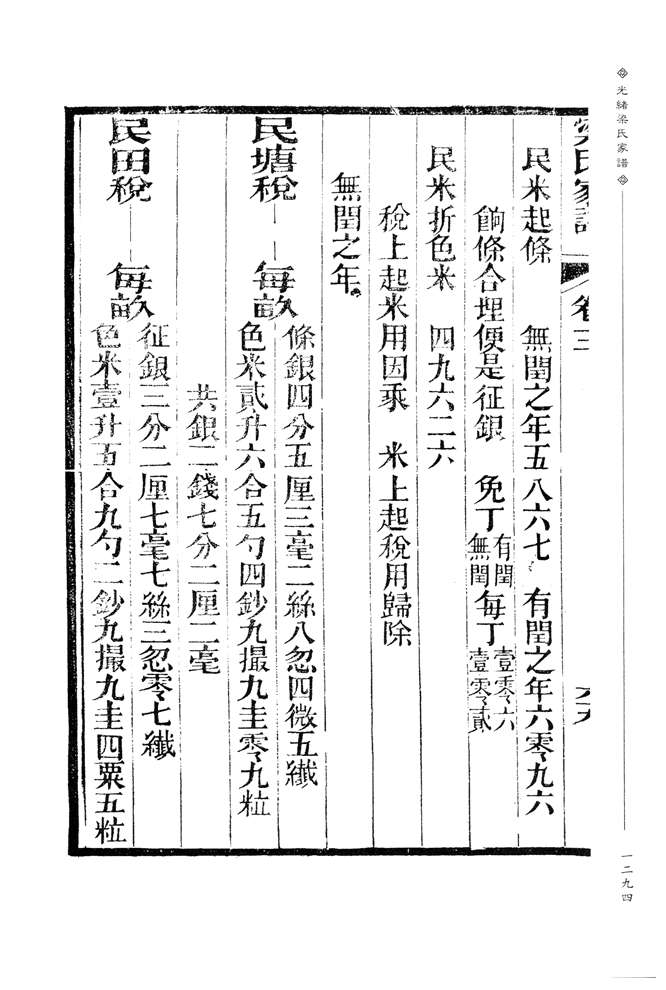 光緒梁氏家譜
一二九四
梁氏家譜 卷三 六九
民米起條 無閏之年五八六七 有閏之年六零九六
餉條合埋便是征銀 免丁有閏無閏每丁壹零六壹零貳
民米折色米 四九六二六
稅上起米用因乘 米上起稅用歸除
無閏之年
民塘稅——每畝條銀四分五厘三毫二絲八忽四微五纖
色米貳升六合五勺四鈔九撮九圭零九粒
共銀二錢七分二厘二毫
民田稅——每畝征銀三分二厘七毫七絲三忽零七纖
色米壹升五合九勺二鈔九撮九圭四粟五粒